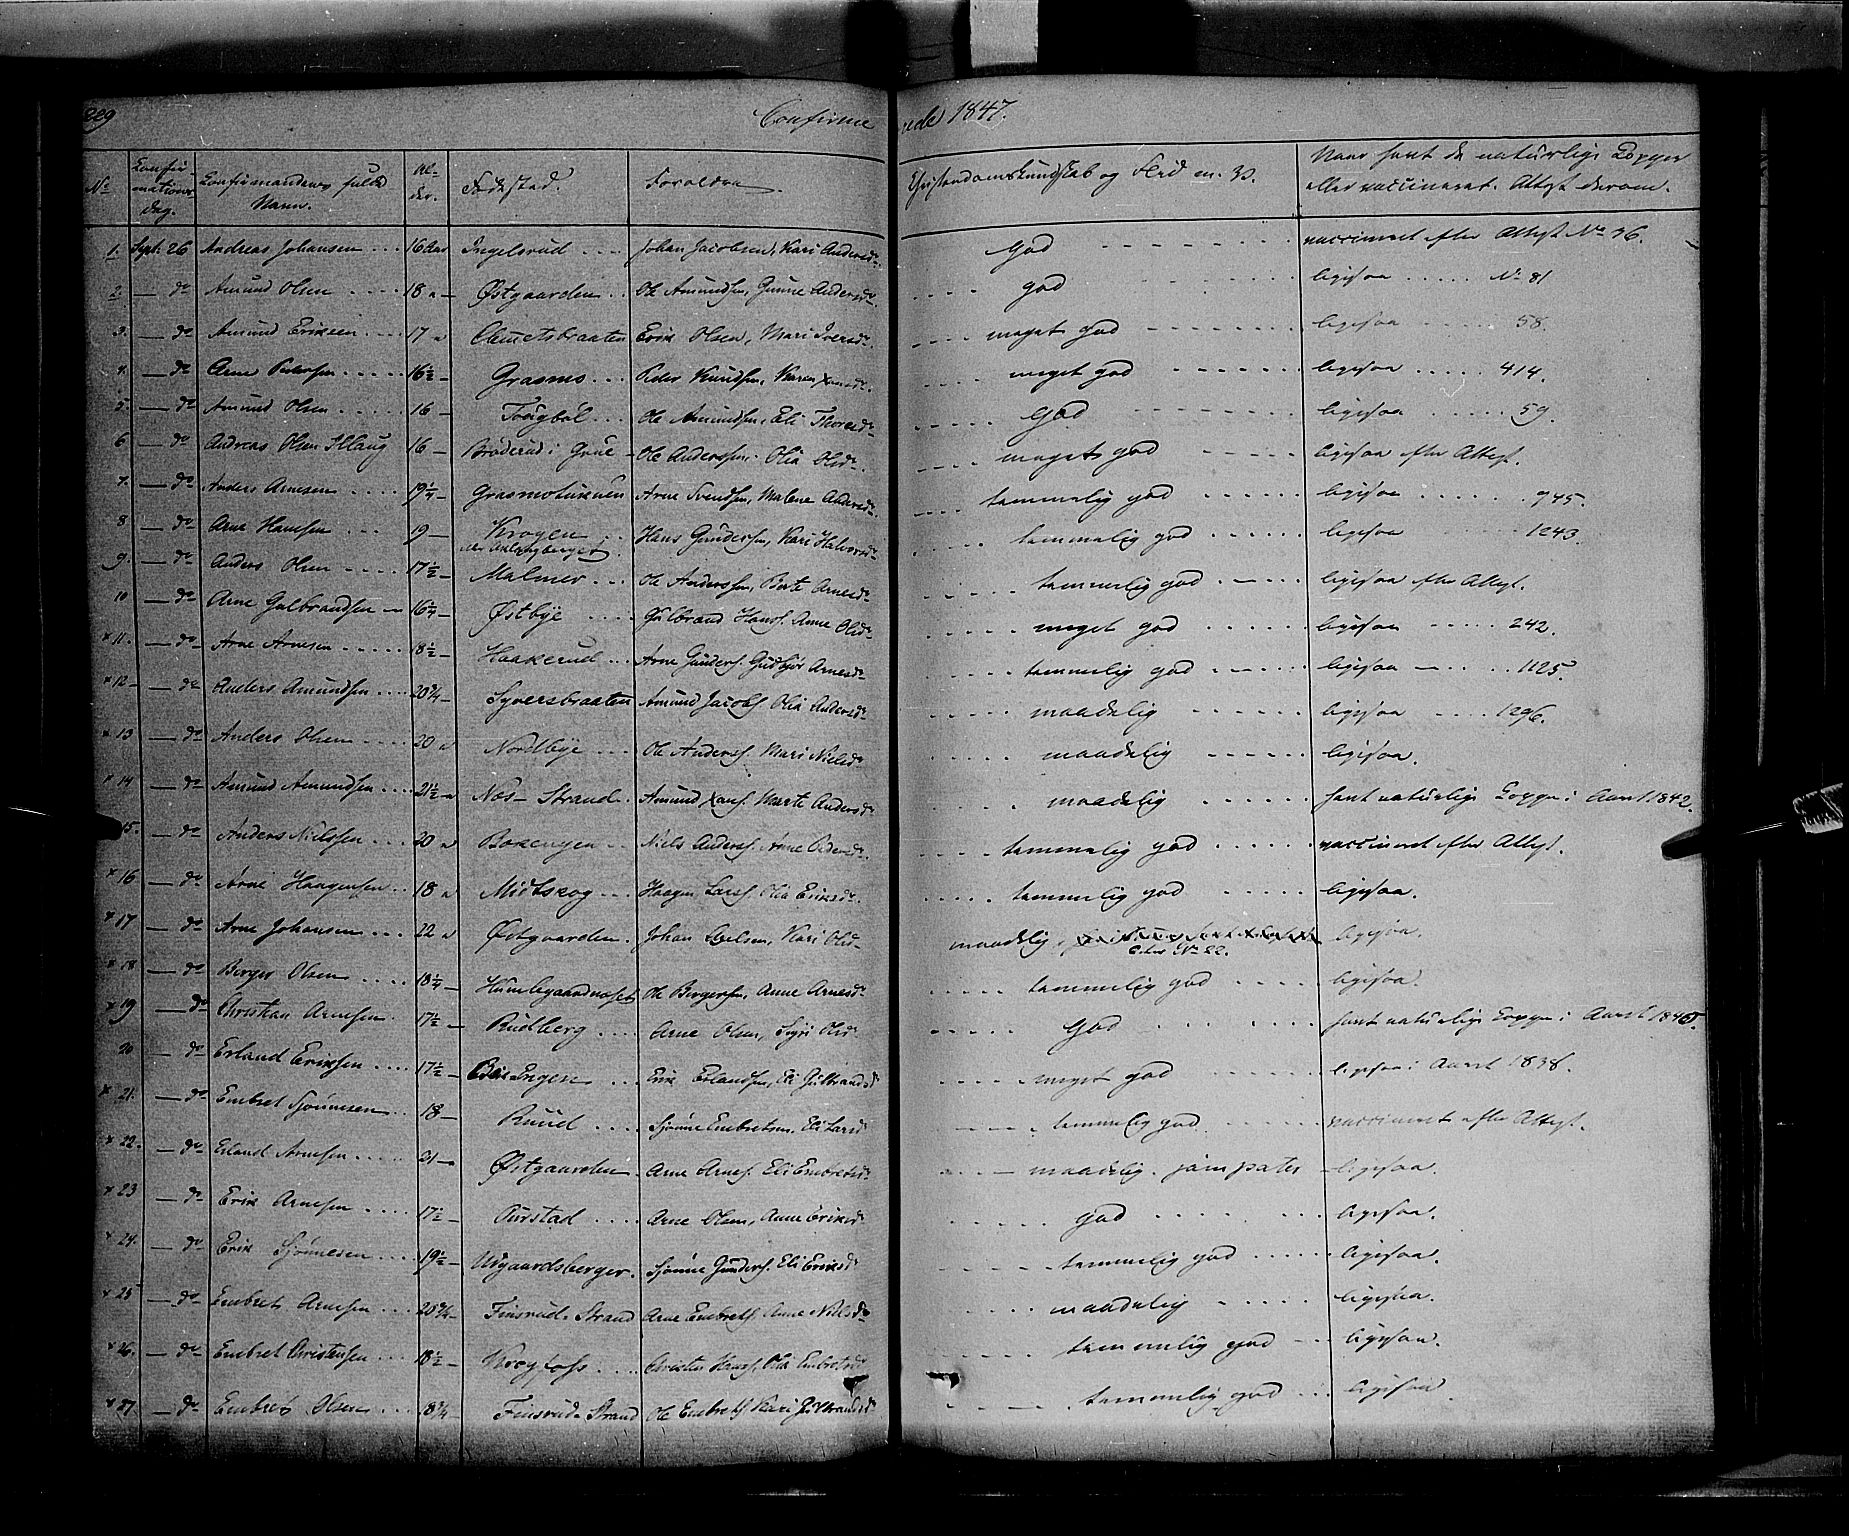 229 Confirmerede 1847.
No Confirmations dag. Confirmandens fulde Navn. Alder. Fødested. Forældre. Christendomskundskab og Flid m. v. Naar havt de naturlige Kopper eller vaccineret. Attest derom.
1. Sept. 26 Andreas Johansen 16 Aar Ingelsrud Johan Jacobsen, Kari Andersdr. God vaccineret efter Attest No 76.
2. do Amund Olsen 18 Østgaarden Ole Amundsen, Gunne Andersdr. god ligesaa No 81
3. do Amund Eriksen 17 Clemetsbraaten Erik Olsen, Mari Iversdr. meget god ligesaa 58.
4. do Arne Pedersen 16½ Grasmo Peder Knudsen, Karen meget god ligesaa 414.
5. do Amund Olsen 16 Ole Amundsen, Eli Thoresdr. God ligesaa 59.
6 do Andreas Olsen 16 Brøderud i Grue Ole Anderssen, Olia Olsdr. meget god ligesaa efter Attest.
7. do Anders Arnesen 19¼ Arne Svendsen, Malene Andersdr. temmelig god ligesaa 945.
8 do Arne Hansen 19 Krogen Hans Gundersen, Kari Halvorsdr. temmelig god ligesaa 1243.
9. do Anders Olsen 17½ Malmer Ole Anderssen, Berte Arnesdr. temmelig god ligesaa efter Attest.
10 do Arne Gulbrandsen 16¼ Østbye Gulbrand Hans. Anne Olsdr. meget god ligesaa 242.
11. do Arne Arnesen 18½ Haakerud Arne Gunders. Gudbjør Arnesdr. temmelig god ligesaa 1125.
12 do Anders Amundsen 20¾ Syversbraaten Amund Jacobs. Olia Andersdr. maadelig ligesaa 1296.
13 do Anders Olsen 20 Nordbye Ole Anders. Mari Nielsdr. maadelig ligesaa.
14 do Amund Amundsen 21½ Nos-Strand. Amund Marte Andersdr. maadelig havt naturlige Kopper i Aaret 1842.
15. do Anders Nielssen 20 Niels Anders. Anne Pedersdr. temmelig god vaccineret efter Attest.
16 do Arne Haagensen 18 Midtskog Haagen Lars. Olia Eriksdr. temmelig god ligesaa.
17 do Arne Johansen 22 Østgaarden. Johan Kari Olsdr. maadelig, ligesaa.
No 22.
18 do Berger Olsen 18¼ Ole Bergersen, Anne Arnesdr. temmelig god ligesaa.
19 do Christian Arnesen 17½ Rudberg Arne Olsen, Sigri Olsdr. God havt naturlige Kopper i Aaret 1845.
20 do Erland Eriksen 17½ Engen Erik Erlandsen, Eli Gulbrandsdr. meget god ligesaa i Aaret 1838.
21. do Embret Sjønnesen 18 Ruud Sjønne Embretsen. Eli Larsdr. temmelig god vaccineret efter Attest.
22. do Erland Arnesen 21 Østgaarden Arne Arnes. Eli Embretsdr. maadelig. ligesaa.
23 do Erik Arnesen 17½ Aurstad Arne Olsen, Anne Eriksdr. god ligesaa.
24. do Erik Sjønnesen 19½ Sjønne Gunders. Eli Eriksdr. temmelig god ligesaa.
25 do Embret Arnesen 20¾ Finsrud-Strand Arne Embrets. Anne Nielsdr. maadelig ligesaa.
26. do Embret Christensen 18½ Krogfoss Christen Hans. Olia Embretsdr. temmelig god ligesaa.
27 do Embret Olsen 18¾ Finsrud-Strand Ole Embrets. Kari Gulbrandsdr. temmelig god ligesaa